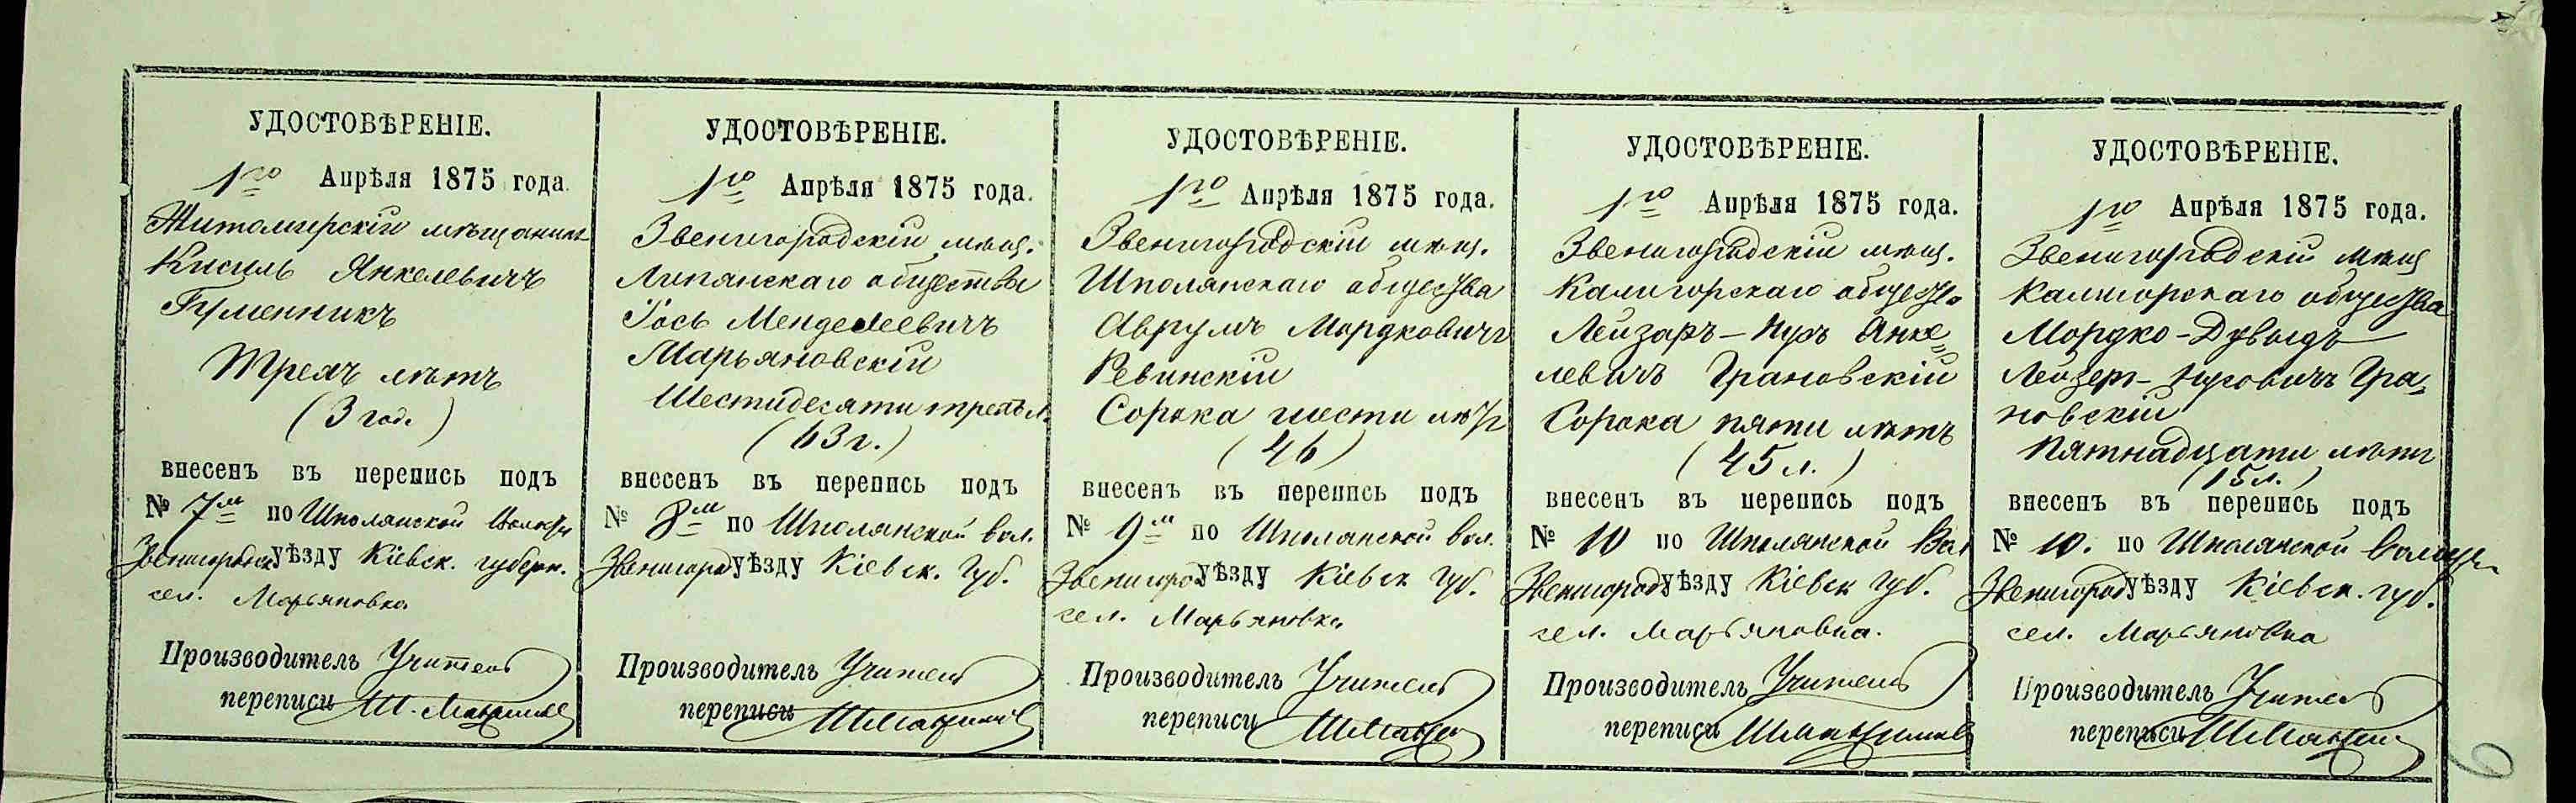 УДОСТОВѢРЕНІЕ.
1го Апрѣля 1875 года.
Житомирскій мѣщанинъ
Кисиль Янкелевичъ
Гуменникъ
Трехъ лѣтъ
(3 год.)
внесенъ въ перепись подъ
№ 7м по Шполянской Волости
Звенигородск уѣзду Кіевск. губерн.
сел. Марьяновка
Производитель Учитель
переписи
УДОСТОВѢРЕНІЕ.
1го Апрѣля 1875 года.
Звенигородскій мѣщ.
Липянскаго общества
Іось Менделеевичъ
Марьяновскій
Шестидесяти трехъ л.
(63 г.)
внесенъ въ перепись подъ
№ 8м по Шполянской вол.
Звенигород уѣзду Кіевск. Губ.
Производитель Учитель
переписи
УДОСТОВѢРЕНІЕ.
1го Апрѣля 1875 года.
Звенигородскій мѣщ.
Шполянскаго общества
Аврумъ Мордковичъ
Ревинскій
Сорока шести лѣтъ
(46)
внесенъ въ перепись подъ
№ 9м по Шполянской вол.
Звенигород уѣзду Кіевск Губ.
сел. Марьяновка
Производитель Учитель
переписи
УДОСТОВѢРЕНІЕ.
1го Апрѣля 1875 года.
Звенигородскій мѣщ.
Калигорскаго общества
Лейзаръ-Нухъ Янке=
левичъ Грановскій
Сорока пяти лѣтъ
(45 л.)
внесенъ въ перепись подъ
№ 10 по Шполянской Вол
Звенигород уѣзду Кіевск Губ.
сел. Марьяновка.
Производитель Учитель
переписи
УДОСТОВѢРЕНІЕ.
1го Апрѣля 1875 года.
Звенигородскій мѣщ
Калигорскаго общества
Мордко-Дувыдъ
Лейзер-Нуховичъ Гра=
новскій
Пятнадцати лѣтъ
(15 л.)
внесенъ въ перепись подъ
№ 10. по Шполянской Волости
Звенигород уѣзду Кіевск. губ.
сел. Марьяновка
Производитель Учитель
переписи